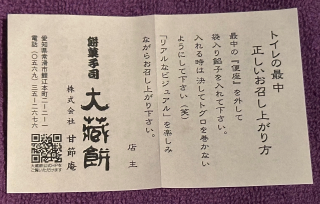 トイレの最中
正しいお召し上がり方
最中の『便座』を外して
袋入り餡子を入れて下さい。
入れる時は決してトグロを巻かない
ようにして下さい(笑)
『リアルなビジュアル』を楽しみ
ながらお召し上がり下さい。
店主
餅菓子司
大蔵餅
株式会社 甘節庵
愛知県常滑市鯉江本町二-二-一
電話(〇五六九)三五-二六七六